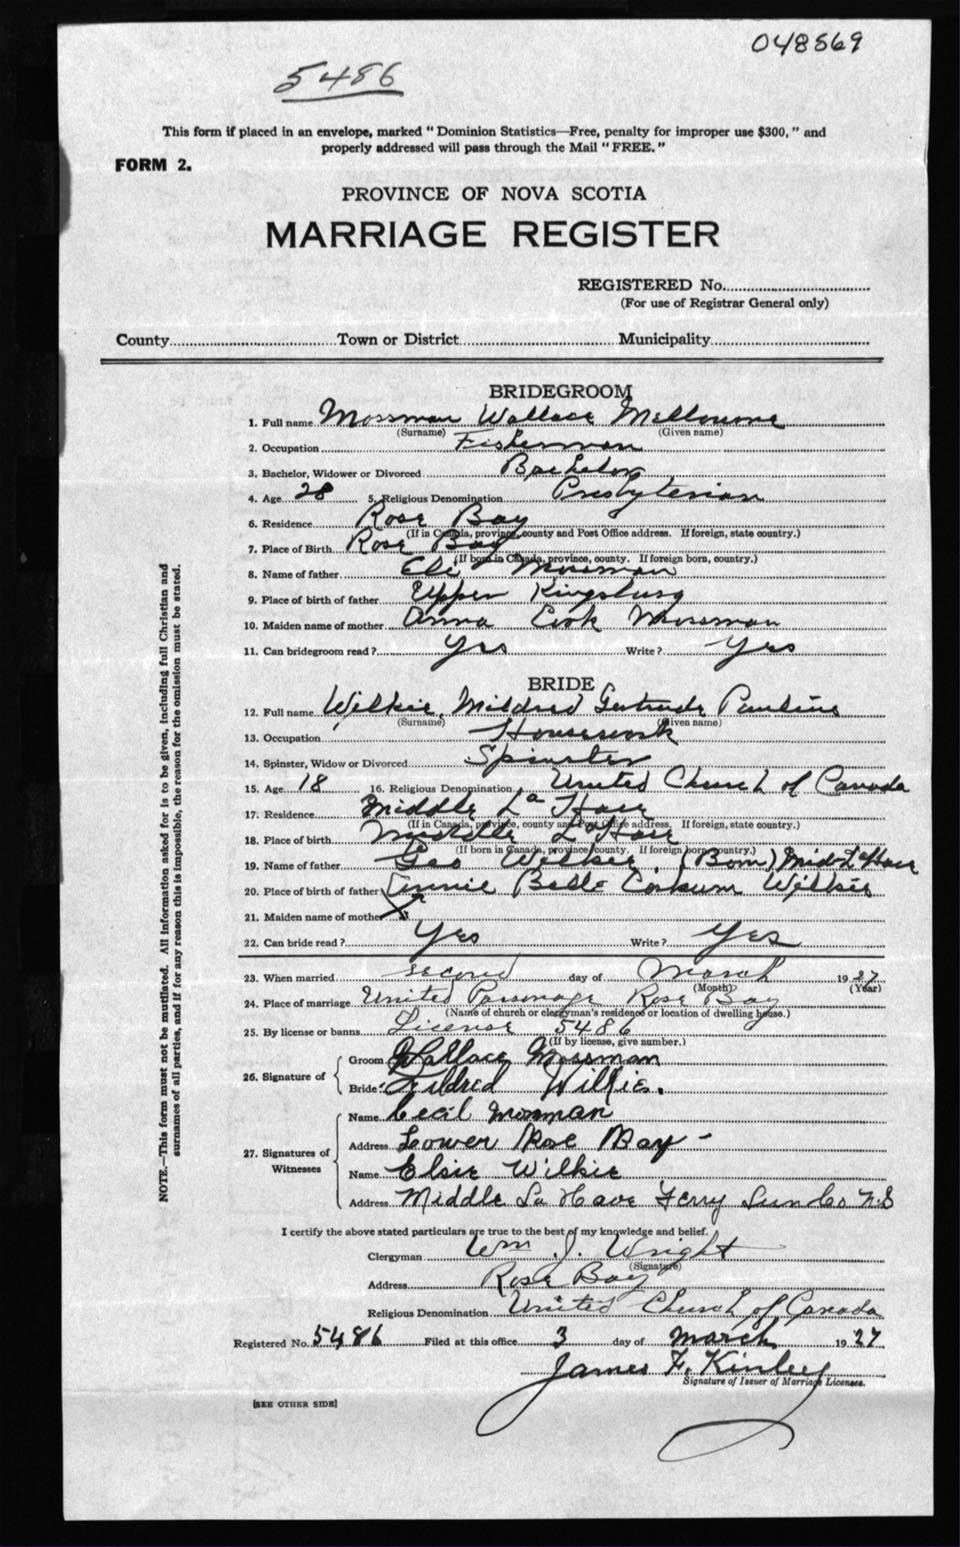 048569
5486
This form if placed in an envelope, marked "Dominion Statistics—Free, penalty for improper use $300," and
properly addressed will pass through the Mail "FREE."
FORM 2.
PROVINCE OF NOVA SCOTIA
MARRIAGE REGISTER
REGISTERED No.
(For use of Registrar General only)
County Town or District Municipality
BRIDEGROOM
1. Full name Mossman Wallace Melbourne
(Surname) (Given name)
2. Occupation Fisherman
3. Bachelor, Widower or Divorced Bachelor
4. Age 28 5. Religious Denomination Presbyterian
6. Residence Rose Bay
(If in Canada, province, county and Post Office address. If foreign, state country.)
7. Place of Birth Rose Bay
(If born in Canada, province, county. If foreign born, country.)
8. Name of father Eli Mossman
9. Place of birth of father Upper Kingsburg
10. Maiden name of mother Anna Cook Mossman
11. Can bridegroom read? Yes Write? Yes
BRIDE
12. Full name Wilkie, Mildred Gertrude Pauline
(Surname) (Given name)
13. Occupation Housework
14. Spinster, Widow or Divorced Spinster
15. Age 18 16. Religious Denomination United Church of Canada
17. Residence Middle La Have
(If in Canada, province, county and Post Office address. If foreign, state country.)
18. Place of birth Middle LaHave
(If born in Canada, province, county. If foreign born, country.)
19. Name of father Geo Wilkie (Born) Mid LaHave
20. Place of birth of father Annie Belle Corkum Wilkie
21. Maiden name of mother
22. Can bride read? Yes Write? Yes
23. When married second day of March 1927
(Month) (Year)
24. Place of marriage United Parsonage Rose Bay
(Name of church or clergyman's residence or location of dwelling house.)
25. By license or banns License 5486
(If by license, give number.)
26. Signature of Groom Wallace Mossman
Bride Mildred Wilkie.
27. Signatures of Witnesses Name Cecil Mossman
Address Lower Rose Bay -
Name Elsie Wilkie
Address Middle La Have Ferry Lun Co N.S
I certify the above stated particulars are true to the best of my knowledge and belief.
Clergyman Wm J. Wright
(Signature)
Address Rose Bay
Religious Denomination United Church of Canada
Registered No. 5486 Filed at this office 3 day of March 1927
James F. Kinley
Signature of Issuer of Marriage Licenses.
[SEE OTHER SIDE]
NOTE.—This form must not be mutilated. All information asked for is to be given, including full Christian and
surnames of all parties, and if for any reason this is impossible, the reason for the omission must be stated.